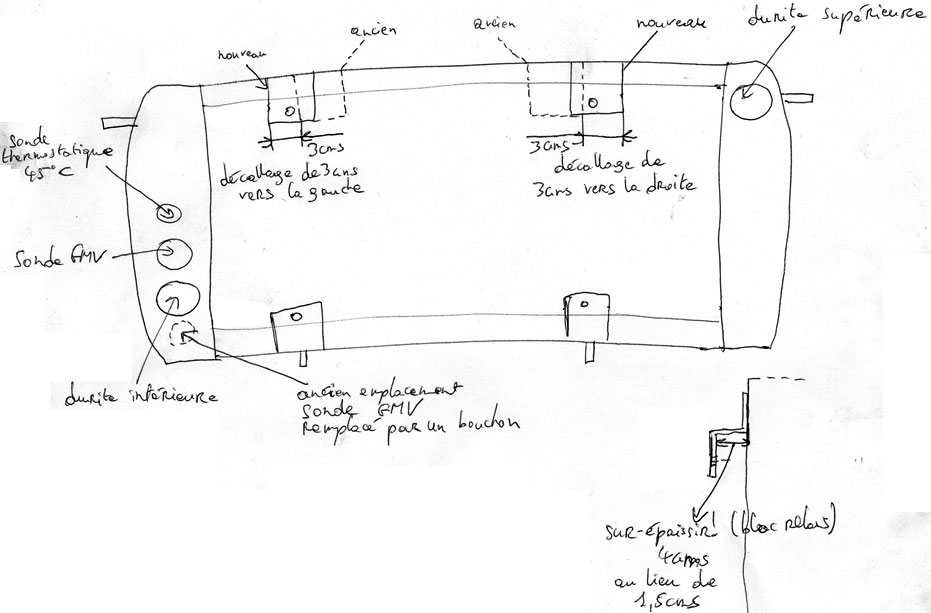 durite supérieure
nouveau
ancien
ancien
nouveau
sonde
thermostatique
45°C
3cms
décallage de 3cms
vers la gauche
3cms
décallage de
3cms vers la droite
sonde GMV
durite inférieure
ancien emplacement
sonde GMV
remplacé par un bouchon
sur-épaissir! (bloc relais)
4cms
au lieu de
1,5cms